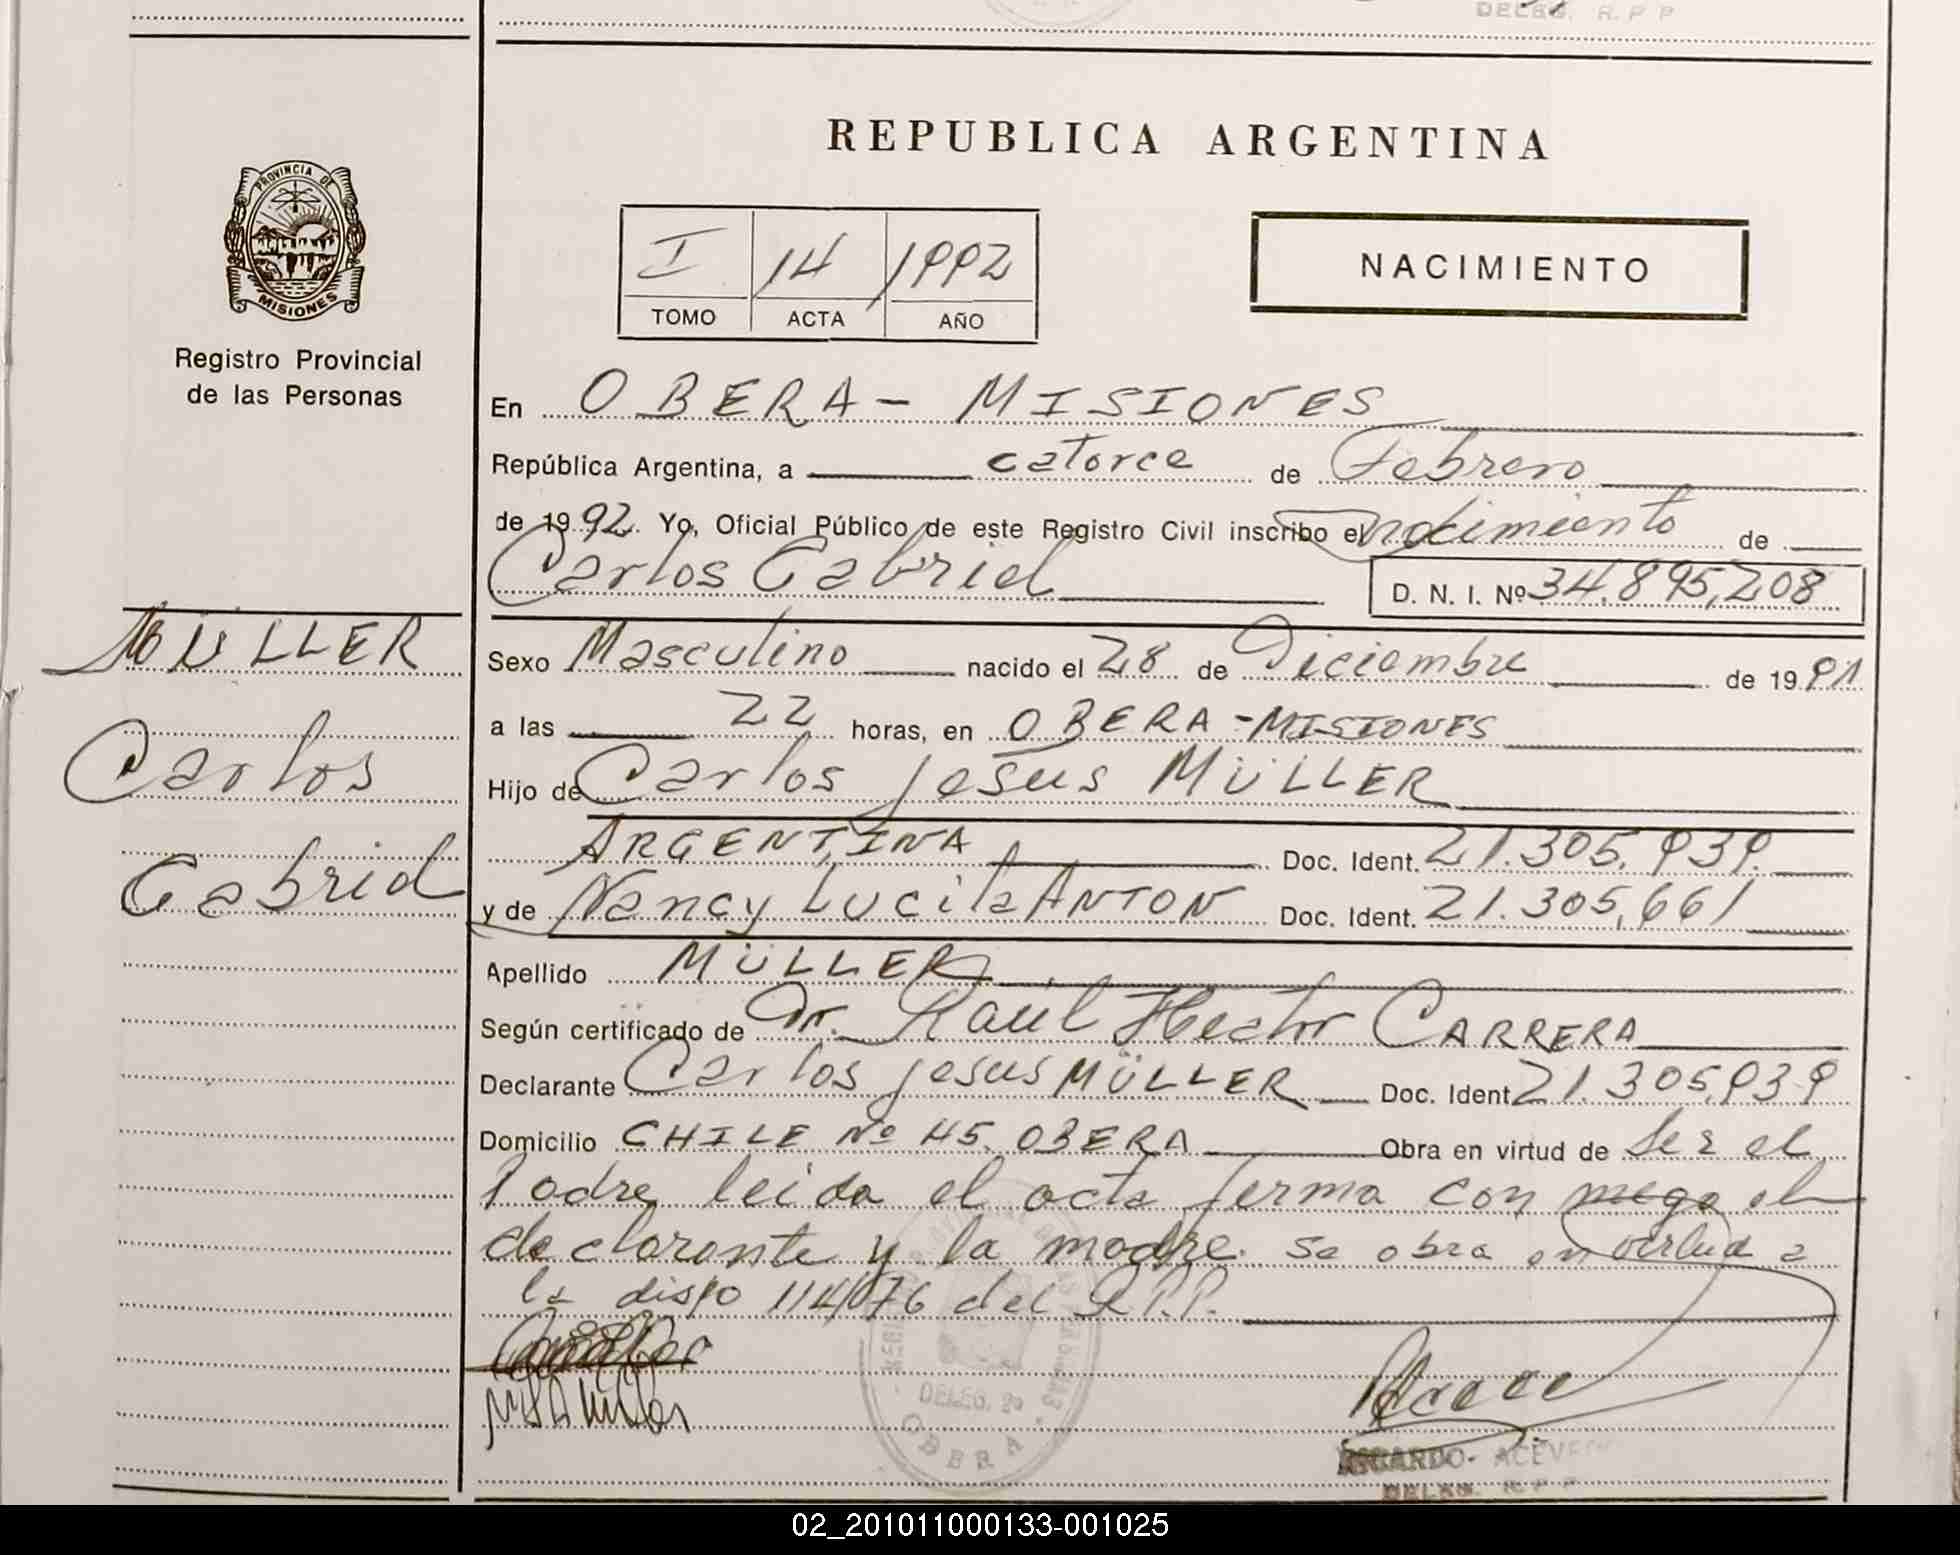 DELEG. R. P. P
REPUBLICA ARGENTINA
PROVINCIA DE
MISIONES
Registro Provincial
de las Personas
I 14 1992
TOMO ACTA AÑO
NACIMIENTO
En OBERA - MISIONES
República Argentina, a catorce de Febrero
de 1992. Yo, Oficial Público de este Registro Civil inscribo el nacimiento de
Carlos Gabriel D. N. I. Nº 34.895,208
MÜLLER
Carlos
Gabriel
Sexo Masculino nacido el 28 de Diciembre de 1991
a las 22 horas, en OBERA - MISIONES
Hijo de Carlos Jesus MÜLLER
ARGENTINA Doc. Ident. 21.305.939.
y de Nancy Lucila ANTON Doc. Ident. 21.305,661
Apellido MÜLLER
Según certificado de Dr. Raúl Hector CARRERA
Declarante Carlos Jesus MÜLLER Doc. Ident 21.305,939
Domicilio CHILE Nº 45. OBERA Obra en virtud de Ser el
Padre leida el acta ferma con mego el
declarante y la madre. Se obra en virtud a
la dispo 114/76 del R.P.P.
DELEG. 2º
OBERA
RICARDO ACEVE
DELEG. R. P. P
02_201011000133-001025